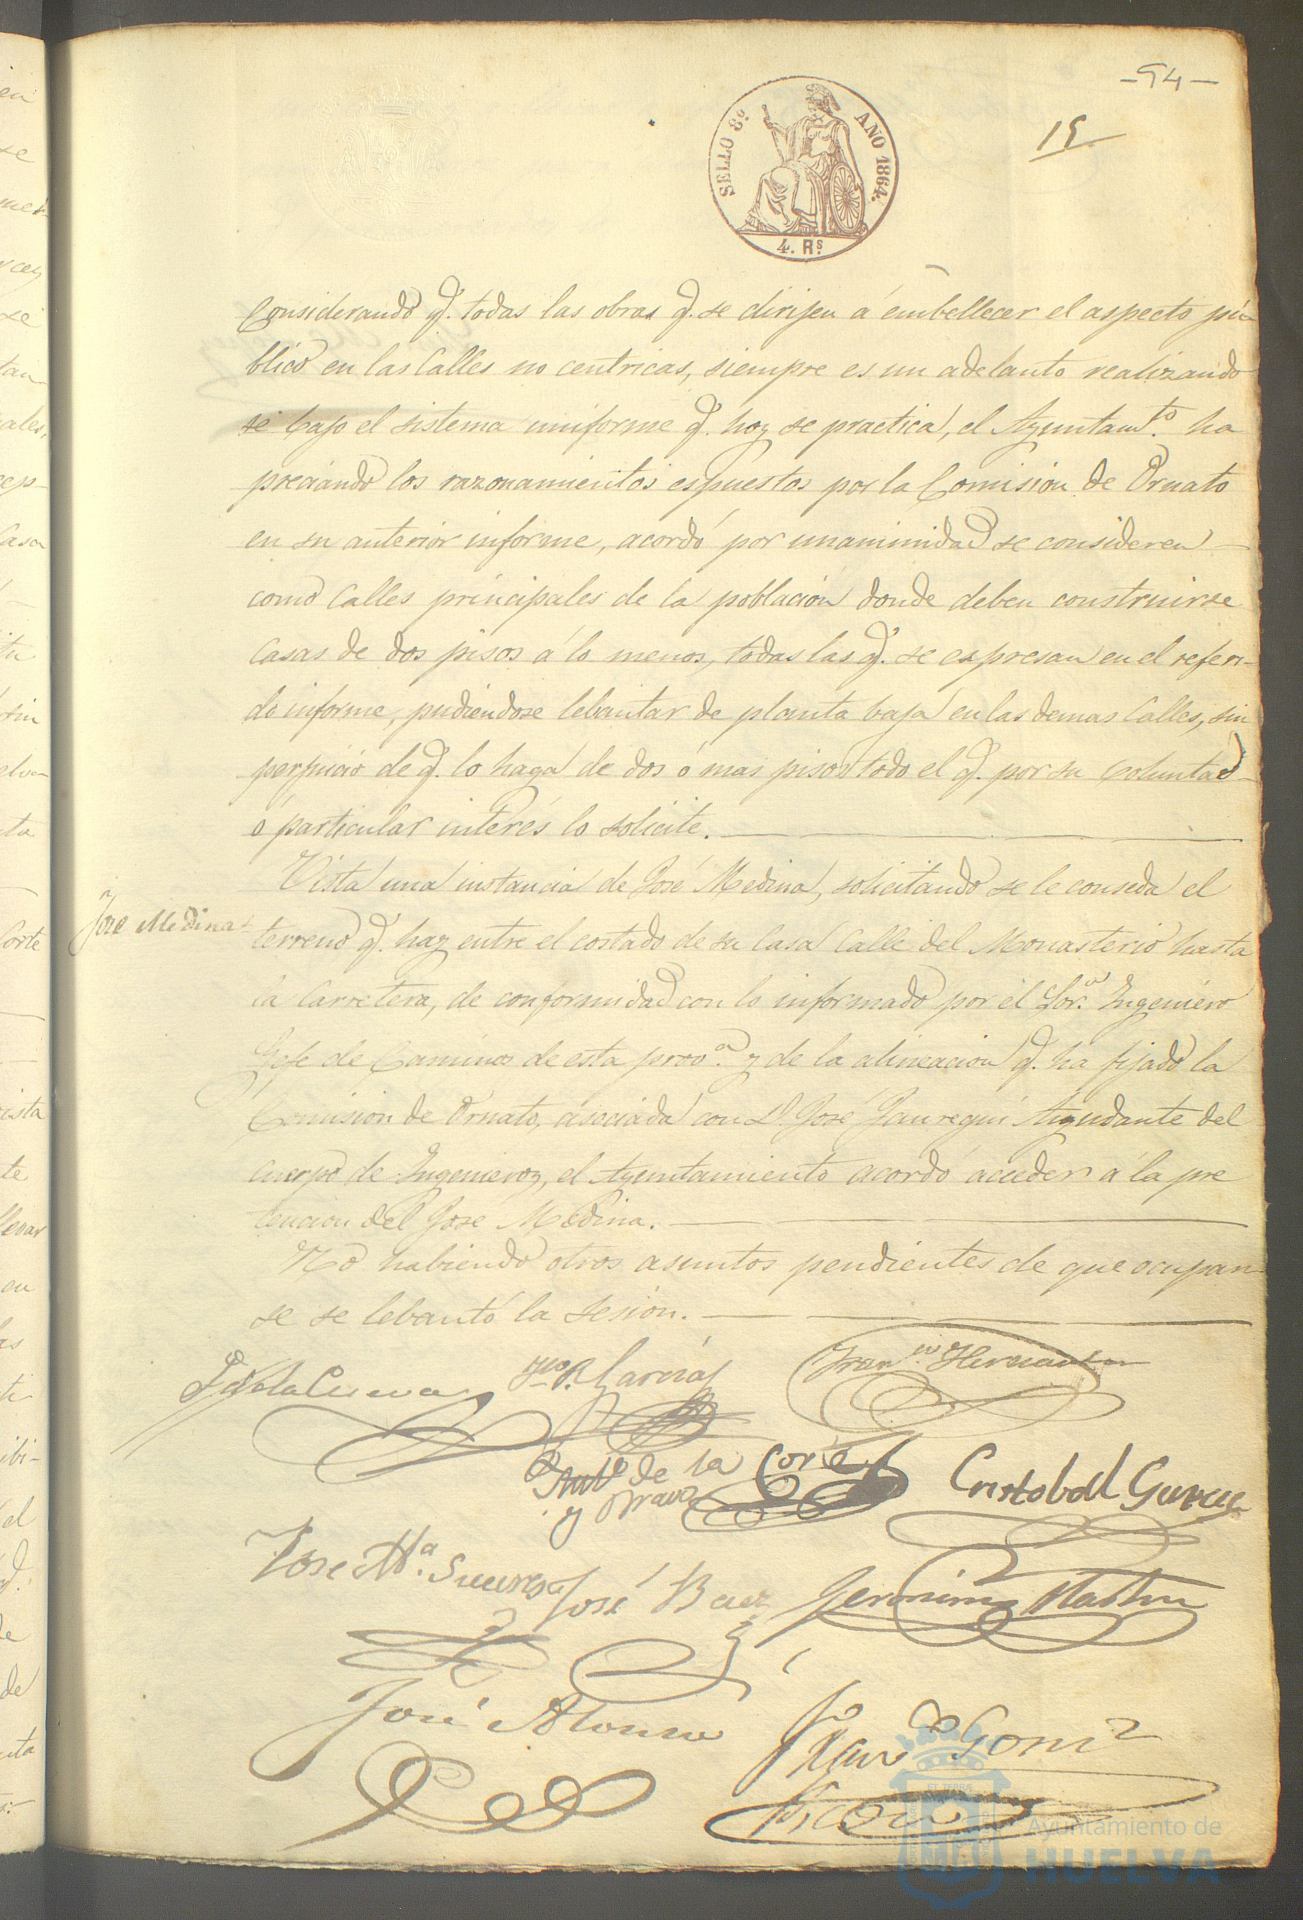 -94-
15
SELLO 8º AÑO 1864.
4. Rs
Considerando q. todas las obras q. se dirijen á embellecer el aspecto pú
blico en las Calles no centricas, siempre es un adelanto realizando
se bajo el sistema uniforme q. hoy se practica, el Ayuntamto. ha
preciando los razonamientos espuestos por la Comision de Ornato
en su anterior informe, acordó por unanimidad se consideren
como Calles principales de la poblacion donde deben construirse
Casas de dos pisos á lo menos, todas las q. se expresan en el referi-
do informe, pudiendose lebantar de planta baja en las demas Calles, sin
perjuicio de q. lo haga de dos ó mas pisos todo el q. por su voluntad
ó particular interés lo solicite.
Vista una instancia de José Medina, solicitando se le conseda el
José Medina
terreno q. hay entre el costado de su Casa Calle del Monasterio hasta
la Carretera, de conformidad con lo informado por el Sor. Ingeniero
Gefe de Caminos de esta prova. y de la alineacion q. ha fijado la
Comision de Ornato, asociada con D. José Jauregui Ayudante del
Cuerpo de Ingenieros, el Ayuntamiento acordó acceder á la pre
tencion del José Medina.
No habiendo otros asuntos pendientes de que ocupar
se se lebantó la sesión.
de la Cueva
García
Franco. Hernandez
Anto. de la Corte
y Bravo
Cristobal Garcia
José Ma. Suarez
José Baez
Geronimo Martin
José Alonso
Franco Gomez
Rico
ET TERRAE
Ayuntamiento de
HUELVA